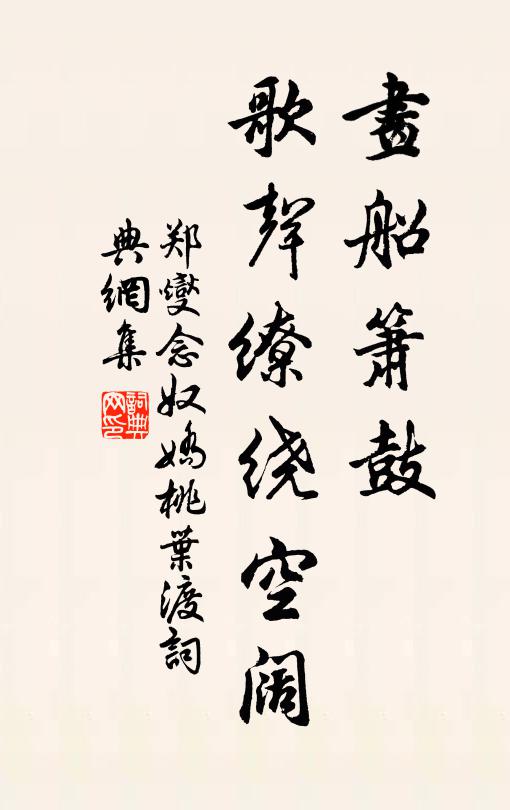 畫船簫鼓
歌聲繚绕空阔
郑燮念奴嬌桃葉渡詞
典網集
詞典网印